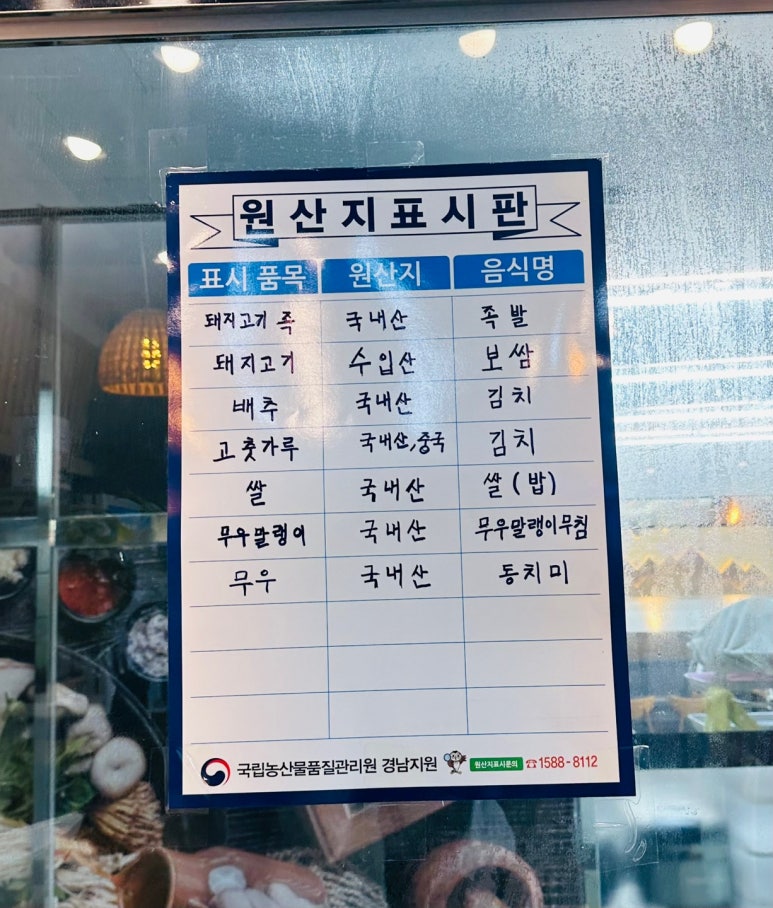 원산지표시판
표시 품목 원산지 음식명
돼지고기 족 국내산 족발
돼지고기 수입산 보쌈
배추 국내산 김치
고춧가루 국내산,중국 김치
쌀 국내산 쌀(밥)
무우말랭이 국내산 무우말랭이무침
무우 국내산 동치미
국립농산물품질관리원 경남지원 원산지표시문의 ☎1588-8112